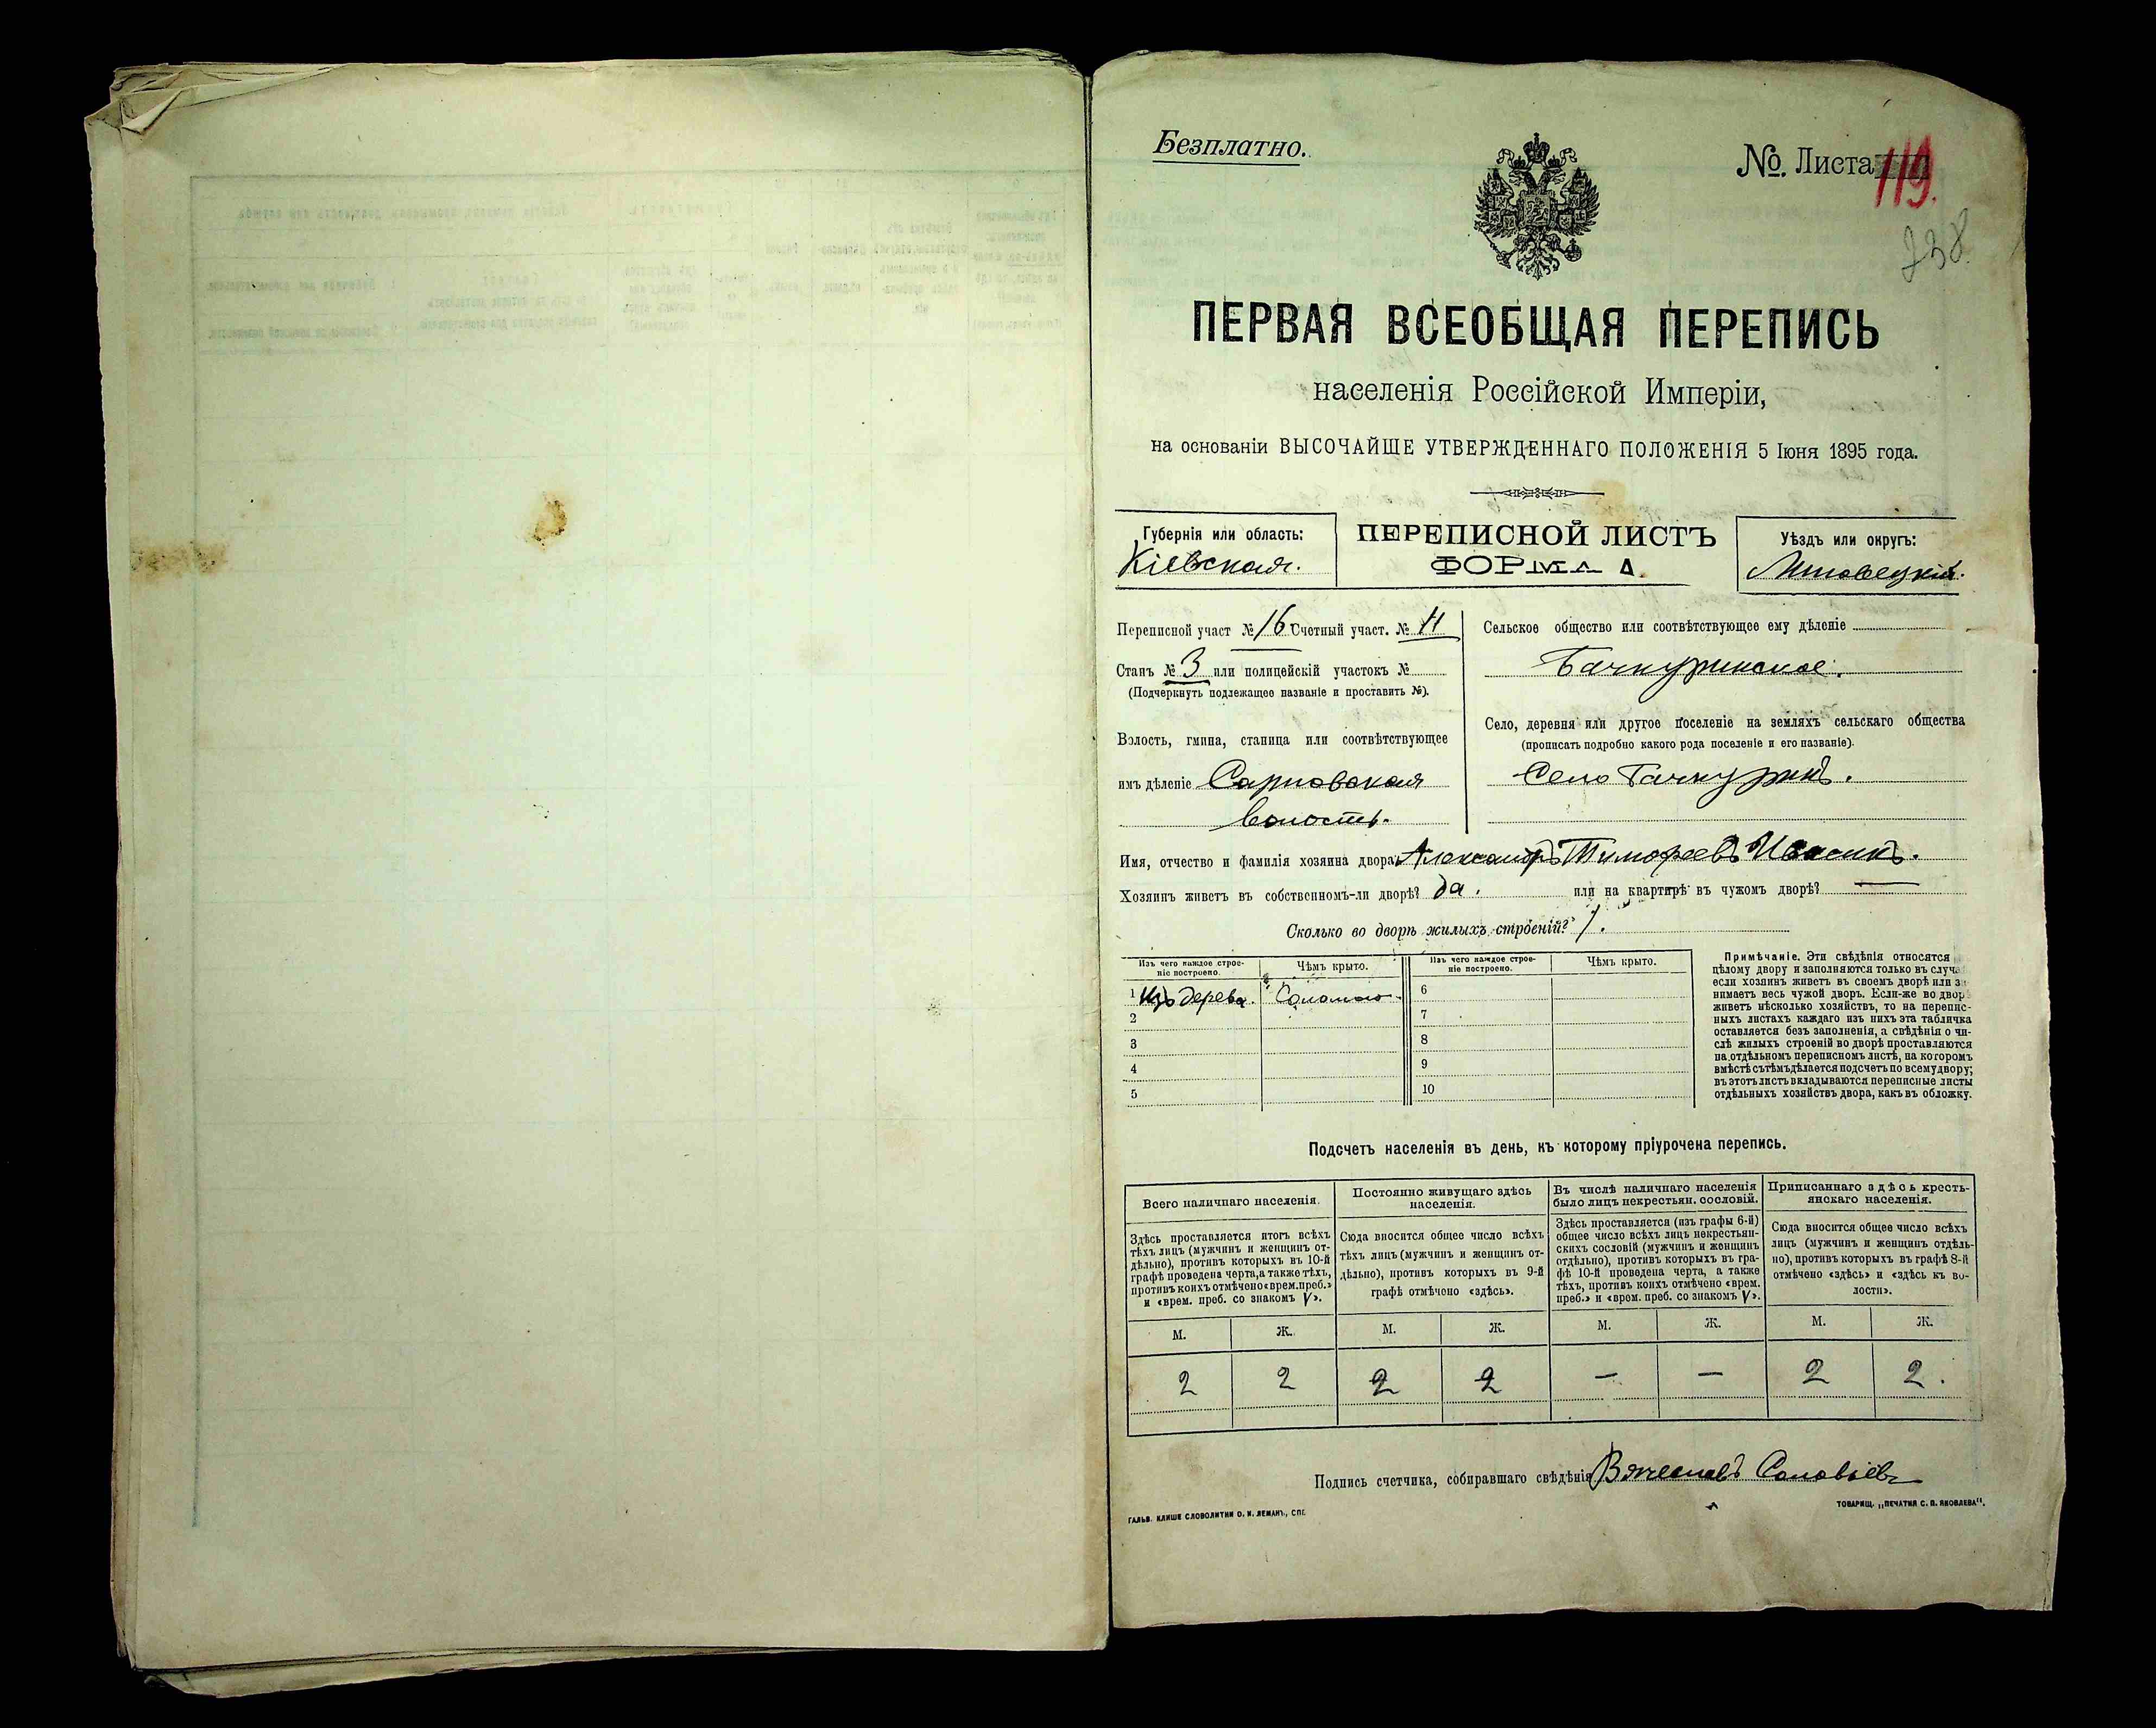 Безплатно.
№. Листа 119.
238
ПЕРВАЯ ВСЕОБЩАЯ ПЕРЕПИСЬ
населенія Россійской Имперіи,
на основаніи ВЫСОЧАЙШЕ УТВЕРЖДЕННАГО ПОЛОЖЕНІЯ 5 Іюня 1895 года.
Губернія или область:
Кіевская.
ПЕРЕПИСНОЙ ЛИСТЪ
ФОРМА А.
Уѣздъ или округъ:
Липовецкій.
Переписной участ № 16 Счетный участ. № 11
Станъ № 3 или полицейскій участокъ №
(Подчеркнуть подлежащее названіе и проставить №).
Волость, гмина, станица или соотвѣтствующее
имъ дѣленіе Сарновская
волость.
Сельское общество или соотвѣтствующее ему дѣленіе
Бачкуринское.
Село, деревня или другое поселеніе на земляхъ сельскаго общества
(прописать подробно какого рода поселеніе и его названіе).
Село Бачкуринъ.
Имя, отчество и фамилія хозяина двора Александръ Тимофеевъ Ивасикъ.
Хозяинъ живетъ въ собственномъ-ли дворѣ? да. или на квартирѣ въ чужомъ дворѣ? —
Сколько во дворѣ жилыхъ строеній? 1.
Изъ чего каждое строе-
ніе построено.
Чѣмъ крыто.
Изъ чего каждое строе-
ніе построено.
Чѣмъ крыто.
1 Изъ дерева. Соломою. 6
2 7
3 8
4 9
5 10
Примѣчаніе. Эти свѣдѣнія относятся
цѣлому двору и заполняются только въ случа
если хозяинъ живетъ въ своемъ дворѣ или за
нимаетъ весь чужой дворъ. Если-же во двор
живетъ нѣсколько хозяйствъ, то на перепис-
ныхъ листахъ каждаго изъ нихъ эта табличка
оставляется безъ заполненія, а свѣдѣнія о чи-
слѣ жилыхъ строеній во дворѣ проставляются
на отдѣльномъ переписномъ листѣ, на которомъ
вмѣстѣ съ тѣмъ дѣлается подсчетъ по всему двору;
въ этотъ листъ вкладываются переписные листы
отдѣльныхъ хозяйствъ двора, какъ въ обложку.
Подсчетъ населенія въ день, къ которому пріурочена перепись.
Всего наличнаго населенія.
Здѣсь проставляется итогъ всѣхъ
тѣхъ лицъ (мужчинъ и женщинъ от-
дѣльно), противъ которыхъ въ 10-й
графѣ проведена черта, а также тѣхъ,
противъ коихъ отмѣчено «врем. преб.»
и «врем. преб. со знакомъ V».
Постоянно живущаго здѣсь
населенія.
Сюда вносится общее число всѣхъ
тѣхъ лицъ (мужчинъ и женщинъ от-
дѣльно), противъ которыхъ въ 9-й
графѣ отмѣчено «здѣсь».
Въ числѣ наличнаго населенія
было лицъ некрестьян. сословій.
Здѣсь проставляется (изъ графы 6-й)
общее число всѣхъ лицъ некрестьян-
скихъ сословій (мужчинъ и женщинъ
отдѣльно), противъ которыхъ въ гра-
фѣ 10-й проведена черта, а также
тѣхъ, противъ коихъ отмѣчено «врем.
преб.» и «врем. преб. со знакомъ V».
Приписаннаго здѣсь кресть-
янскаго населенія.
Сюда вносится общее число всѣхъ
лицъ (мужчинъ и женщинъ отдѣль-
но), противъ которыхъ въ графѣ 8-й
отмѣчено «здѣсь» и «здѣсь къ во-
лости».
М. Ж. М. Ж. М. Ж. М. Ж.
2 2 2 2 — — 2 2.
Подпись счетчика, собиравшаго свѣдѣнія Вячеславъ Соловьевъ
ГАЛЬВ. КЛИШЕ СЛОВОЛИТНИ О. И. ЛЕМАНЪ, СПБ.
ТОВАРИЩ. „ПЕЧАТНЯ С. П. ЯКОВЛЕВА".